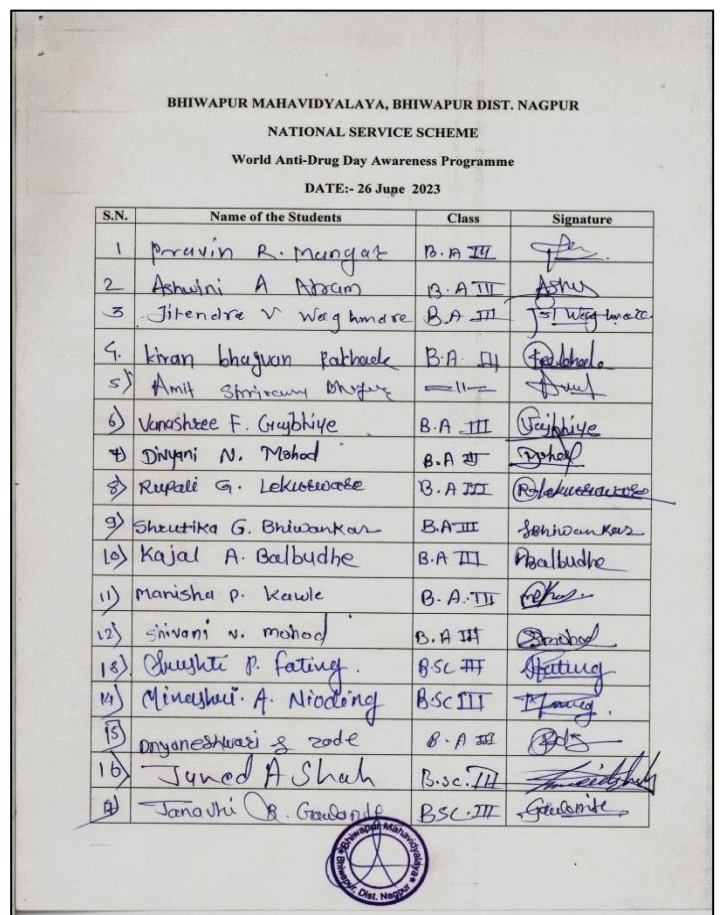 BHIWAPUR MAHAVIDYALAYA, BHIWAPUR DIST. NAGPUR
NATIONAL SERVICE SCHEME
World Anti-Drug Day Awareness Programme
DATE:- 26 June 2023
S.N. Name of the Students Class Signature
1 Pravin R. Mungat B.A III
2 Ashwini A Atram B.A III Ashu
3 Jitendra V Waghmare B.A III Waghmare
4. kiran bhagvan Rakhade B.A. III
5) Amit =11=
6) Vanashree F. Gajbhiye B.A III Gajbhiye
7) Divyani N. Mohod B.A III Mohod
8) Rupali G. Lekurwale B.A III RLekurwale
9) Shrutika G. Bhiwankar B.A III SBhiwankar
10) Kajal A. Balbudhe B.A III Balbudhe
11) Manisha P. Kawle B.A.III
12) Shivani N. mohod B.A III Smohod
13) Srushti P. Fating. B.SC III Fating
14) Minashri. A. B.SC III
15) Dnyaneshwari S zode B.A III
16) Juned A Shah B.sc. III
17) Janavhi R. BSC.III
Bhiwapur Mahavidyalaya
Bhiwapur, Dist. Nagpur